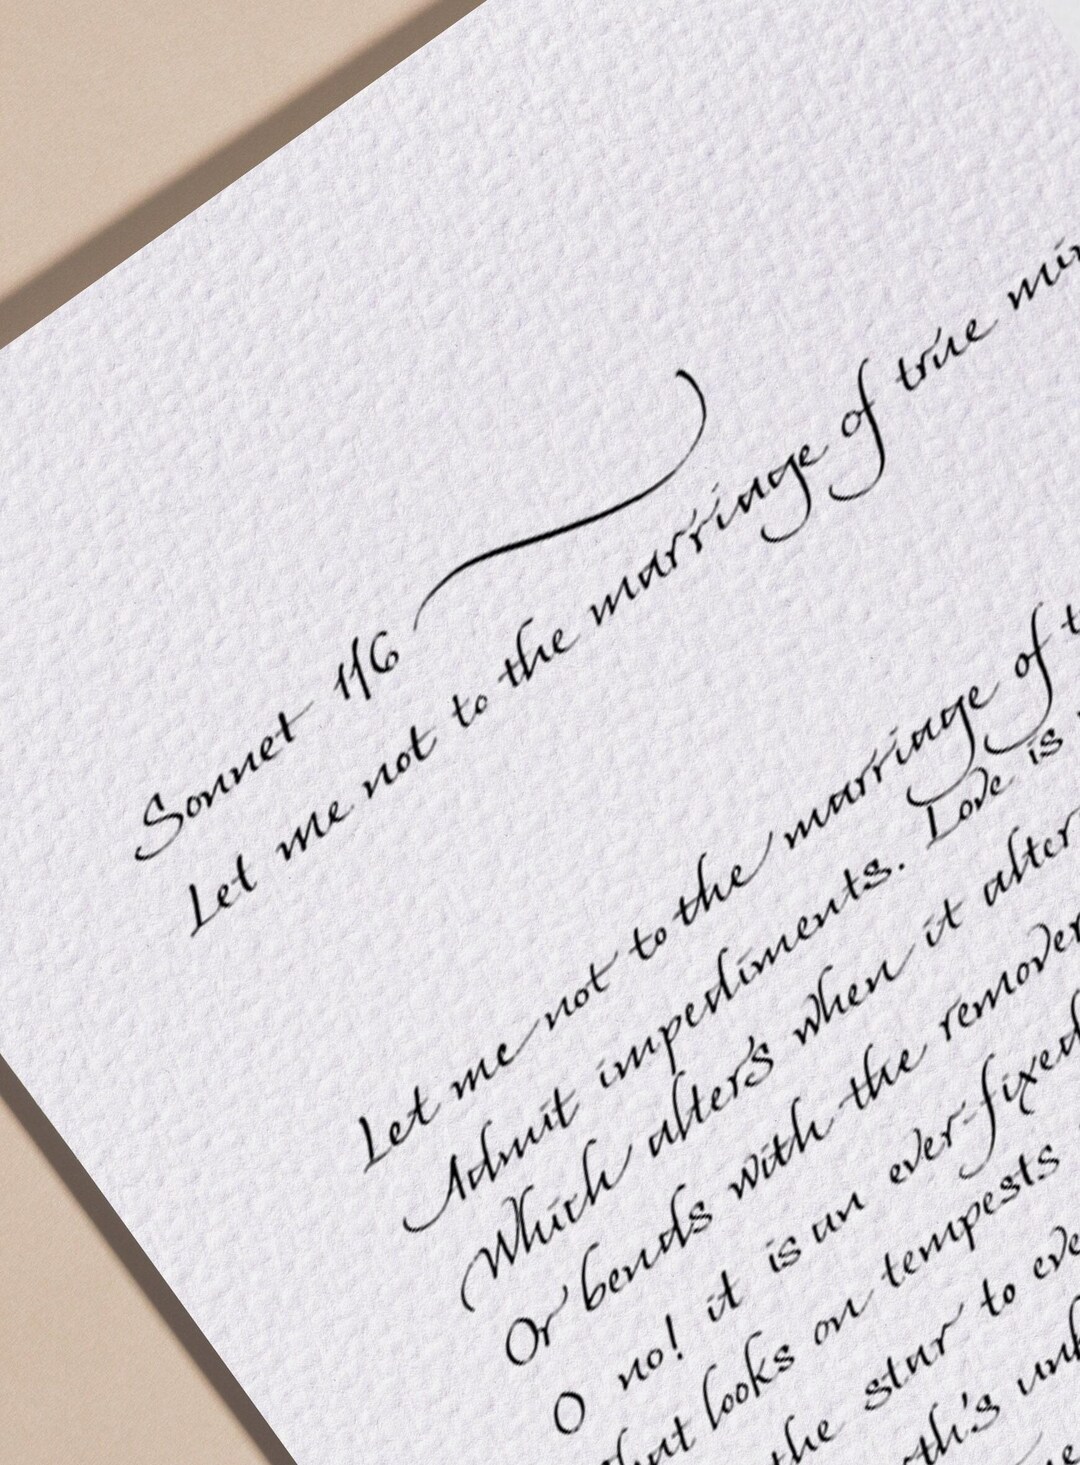 Sonnet 116
Let me not to the marriage of true
Let me not to the marriage of
Admit impediments. Love is
Which alter's when it alter
Or bends with the remover
O no! it is an ever-fixed
looks on tempests
the star to